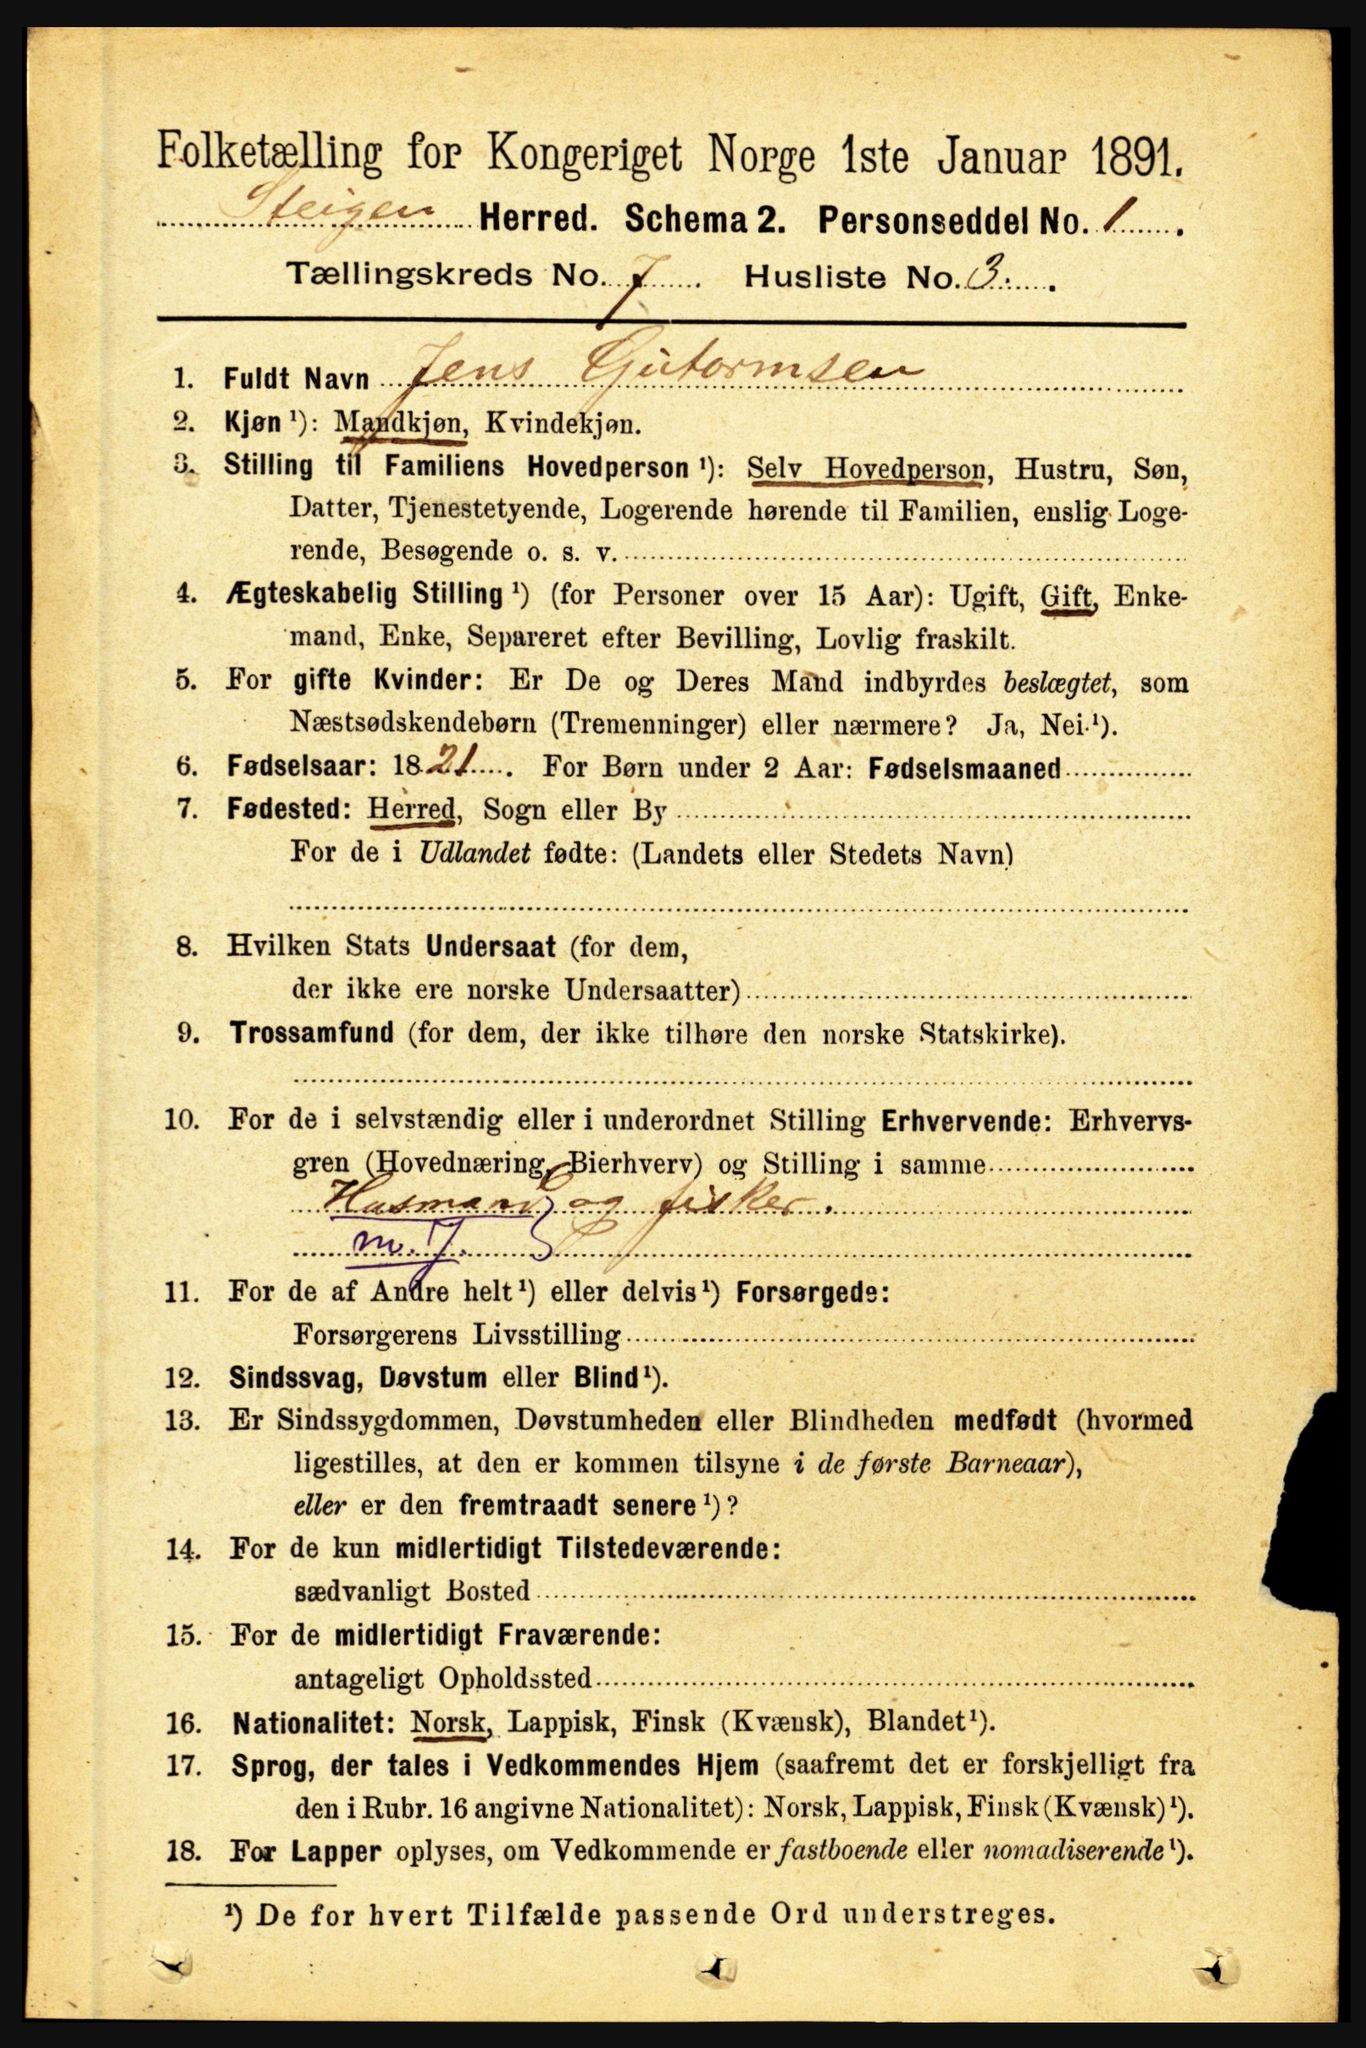 Folketælling for Kongeriget Norge 1ste Januar 1891.
Steigen Herred. Schema 2. Personseddel No. 1.
Tællingskreds No. 7. Husliste No. 3.
1. Fuldt Navn Jens Gutormsen
2. Kjøn ¹): Mandkjøn, Kvindekjøn.
3. Stilling til Familiens Hovedperson ¹): Selv Hovedperson, Hustru, Søn,
Datter, Tjenestetyende, Logerende hørende til Familien, enslig Loge-
rende, Besøgende o. s. v.
4. Ægteskabelig Stilling ¹) (for Personer over 15 Aar): Ugift, Gift, Enke-
mand, Enke, Separeret efter Bevilling, Lovlig fraskilt.
5. For gifte Kvinder: Er De og Deres Mand indbyrdes beslægtet, som
Næstsødskendebørn (Tremenninger) eller nærmere? Ja, Nei ¹).
6. Fødselsaar: 1821. For Børn under 2 Aar: Fødselsmaaned
7. Fødested: Herred, Sogn eller By
For de i Udlandet fødte: (Landets eller Stedets Navn)
8. Hvilken Stats Undersaat (for dem,
der ikke ere norske Undersaatter)
9. Trossamfund (for dem, der ikke tilhøre den norske Statskirke).
10. For de i selvstændig eller i underordnet Stilling Erhvervende: Erhvervs-
gren (Hovednæring, Bierhverv) og Stilling i samme
Husmand og fisker.
m. J.
11. For de af Andre helt ¹) eller delvis ¹) Forsørgede:
Forsørgerens Livsstilling
12. Sindssvag, Døvstum eller Blind ¹).
13. Er Sindssygdommen, Døvstumheden eller Blindheden medfødt (hvormed
ligestilles, at den er kommen tilsyne i de første Barneaar),
eller er den fremtraadt senere ¹)?
14. For de kun midlertidigt Tilstedeværende:
sædvanligt Bosted
15. For de midlertidigt Fraværende:
antageligt Opholdssted
16. Nationalitet: Norsk, Lappisk, Finsk (Kvænsk), Blandet ¹).
17. Sprog, der tales i Vedkommendes Hjem (saafremt det er forskjelligt fra
den i Rubr. 16 angivne Nationalitet): Norsk, Lappisk, Finsk (Kvænsk) ¹).
18. For Lapper oplyses, om Vedkommende er fastboende eller nomadiserende ¹).
¹) De for hvert Tilfælde passende Ord understreges.